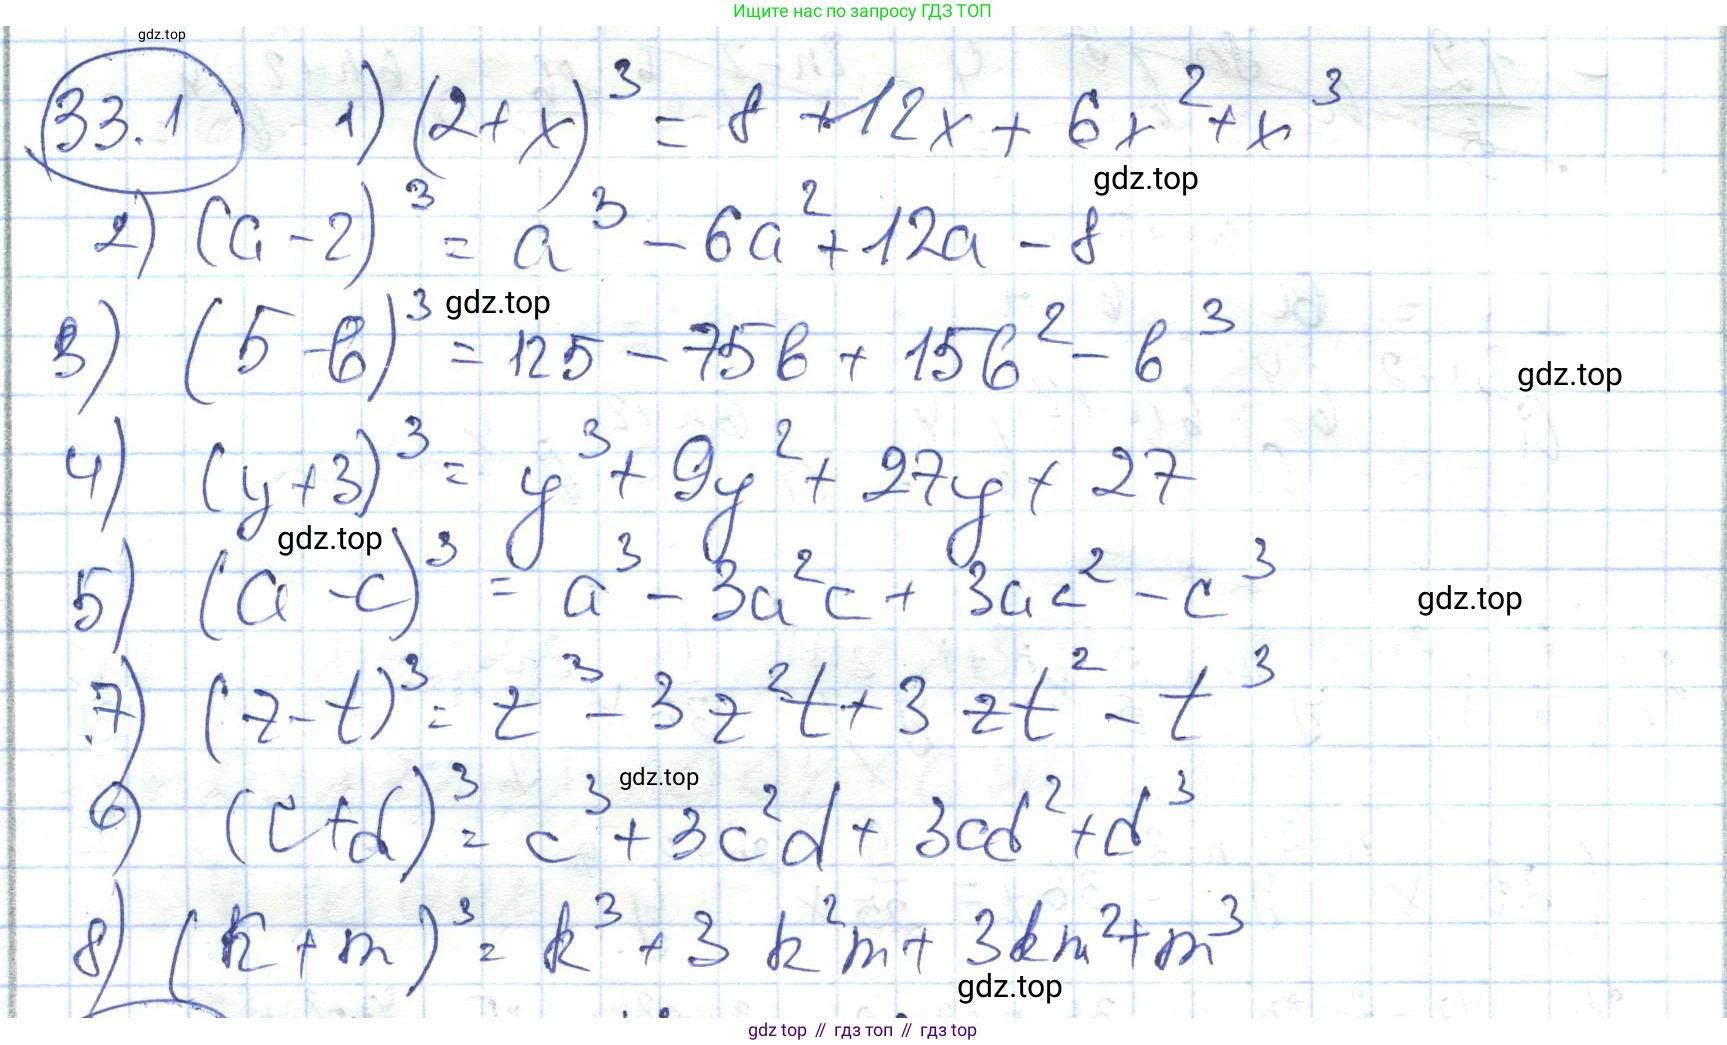 Ищите нас по запросу ГДЗ ТОП
gdz.top
33.1 1) (2+x)³ = 8 +12x + 6x²+x³
gdz.top
2) (a-2)³ = a³ - 6a² + 12a - 8
gdz.top
3) (5-b)³ = 125 - 75b + 15b² - b³
gdz.top
4) (y+3)³ = y³ + 9y² + 27y + 27
gdz.top
5) (a-c)³ = a³ - 3a²c + 3ac² - c³
gdz.top
7) (z-t)³ = z³ - 3z²t + 3zt² - t³
gdz.top
6) (c+d)³ = c³ + 3c²d + 3cd² + d³
8) (k+m)³ = k³ + 3k²m + 3km² + m³
gdz.top
gdz top // гдз топ // гдз top